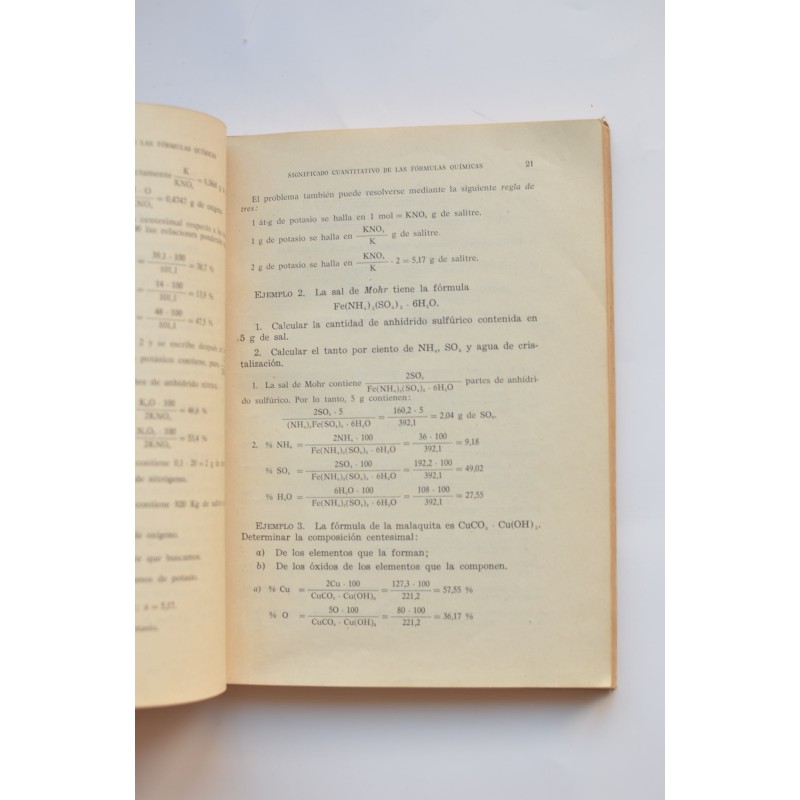 DE LAS FÓRMULAS QUÍMICAS
K
KNO₃
39,1 · 100
101,1
= 38,7 %
14 · 100
101,1
= 13,8 %
48 · 100
101,1
= 47,5 %
2 y se escribe después
K₂O · 100
2KNO₃
= 46,6 %
N₂O₅ · 100
2KNO₃
= 53,4 %
de nitrógeno.
de oxígeno.
que buscamos
de potasio.
SIGNIFICADO CUANTITATIVO DE LAS FÓRMULAS QUÍMICAS 21
El problema también puede resolverse mediante la siguiente regla de
tres:
1 át-g de potasio se halla en 1 mol = KNO₃ g de salitre.
1 g de potasio se halla en KNO₃/K g de salitre.
2 g de potasio se halla en KNO₃/K · 2 = 5,17 g de salitre.
EJEMPLO 2. La sal de Mohr tiene la fórmula
Fe(NH₄)₂(SO₄)₂ · 6H₂O.
1. Calcular la cantidad de anhídrido sulfúrico contenida en
5 g de sal.
2. Calcular el tanto por ciento de NH₄, SO₄ y agua de cris-
talización.
1. La sal de Mohr contiene 2SO₃/Fe(NH₄)₂(SO₄)₂ · 6H₂O partes de anhídri-
do sulfúrico. Por lo tanto, 5 g contienen:
2SO₃ · 5/(NH₄)₂Fe(SO₄)₂ · 6H₂O = 160,2 · 5/392,1 = 2,04 g de SO₃.
2. % NH₄ = 2NH₄ · 100/Fe(NH₄)₂(SO₄)₂ · 6H₂O = 36 · 100/392,1 = 9,18
% SO₄ = 2SO₄ · 100/Fe(NH₄)₂(SO₄)₂ · 6H₂O = 192,2 · 100/392,1 = 49,02
% H₂O = 6H₂O · 100/Fe(NH₄)₂(SO₄)₂ · 6H₂O = 108 · 100/392,1 = 27,55
EJEMPLO 3. La fórmula de la malaquita es CuCO₃ · Cu(OH)₂.
Determinar la composición centesimal:
a) De los elementos que la forman;
b) De los óxidos de los elementos que la componen.
a) % Cu = 2Cu · 100/CuCO₃ · Cu(OH)₂ = 127,3 · 100/221,2 = 57,55 %
% O = 5O · 100/CuCO₃ · Cu(OH)₂ = 80 · 100/221,2 = 36,17 %